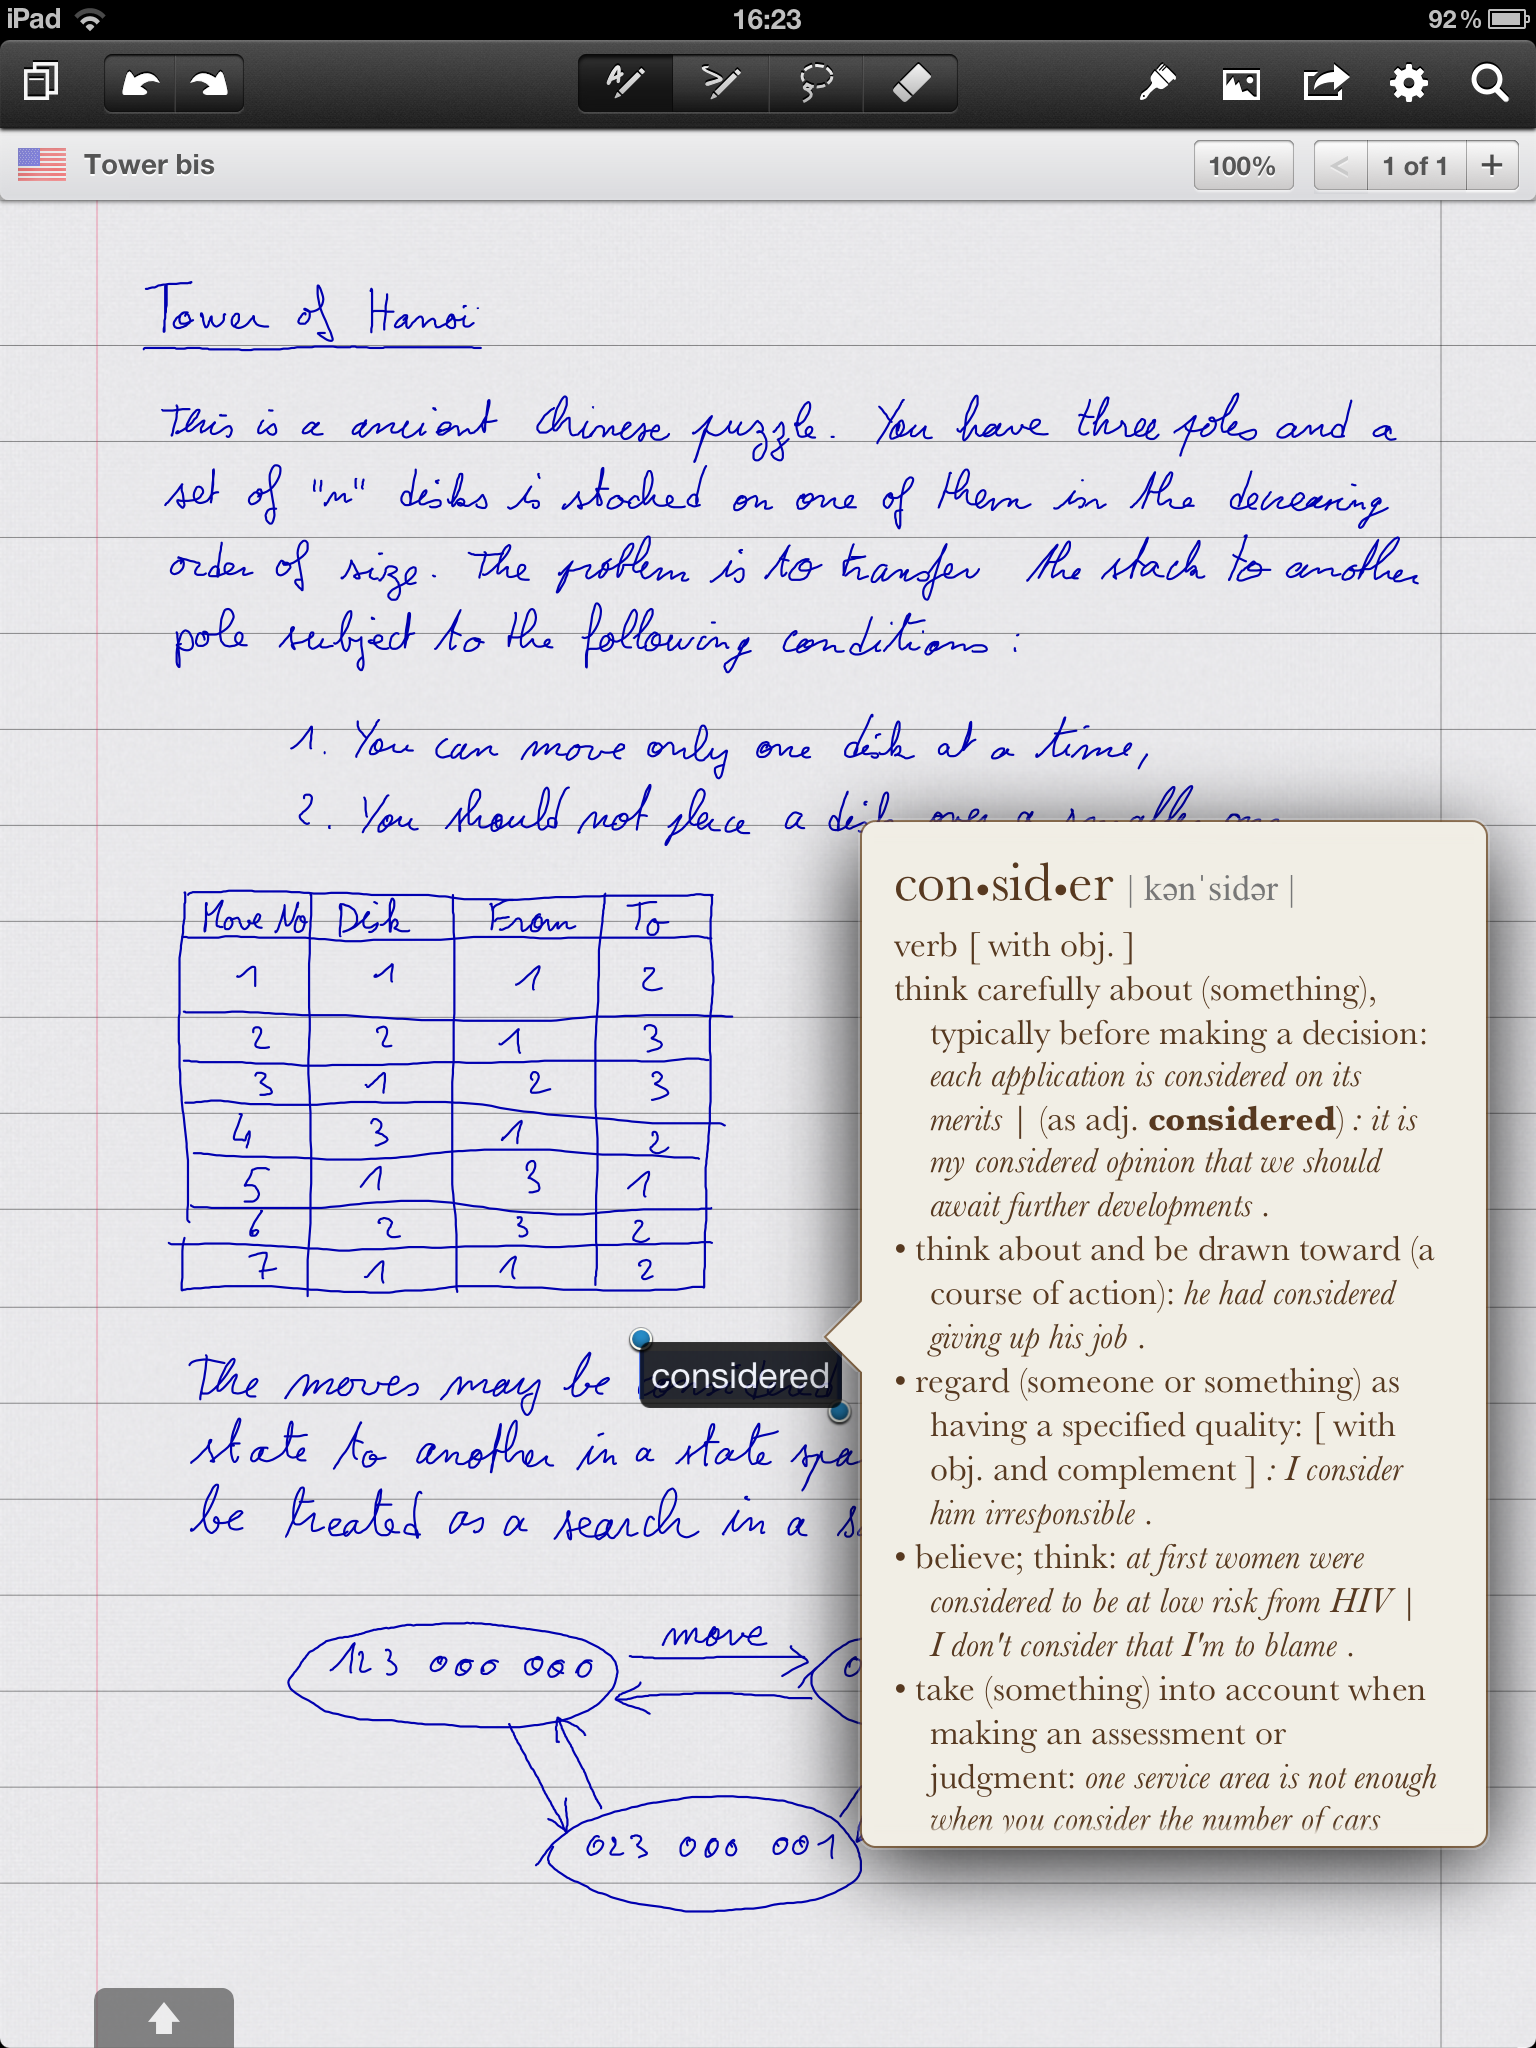 iPad 16:23 92%
Tower bis 100% < 1 of 1 +
Tower of Hanoi
This is a ancient Chinese puzzle. You have three poles and a
set of "n" disks is stacked on one of them in the decreasing
order of size. The problem is to transfer the stack to another
pole subject to the following conditions :
1. You can move only one disk at a time,
2. You should not place a disk over a smaller one
Move No Disk From To
1 1 1 2
2 2 1 3
3 1 2 3
4 3 1 2
5 1 3 1
6 2 3 2
7 1 1 2
The moves may be considered
state to another in a state spa
be treated as a search in a s
move
123 000 000
023 000 001
con•sid•er | kənˈsidər |
verb [ with obj. ]
think carefully about (something),
typically before making a decision:
each application is considered on its
merits | (as adj. considered) : it is
my considered opinion that we should
await further developments .
• think about and be drawn toward (a
course of action): he had considered
giving up his job .
• regard (someone or something) as
having a specified quality: [ with
obj. and complement ] : I consider
him irresponsible .
• believe; think: at first women were
considered to be at low risk from HIV |
I don't consider that I'm to blame .
• take (something) into account when
making an assessment or
judgment: one service area is not enough
when you consider the number of cars